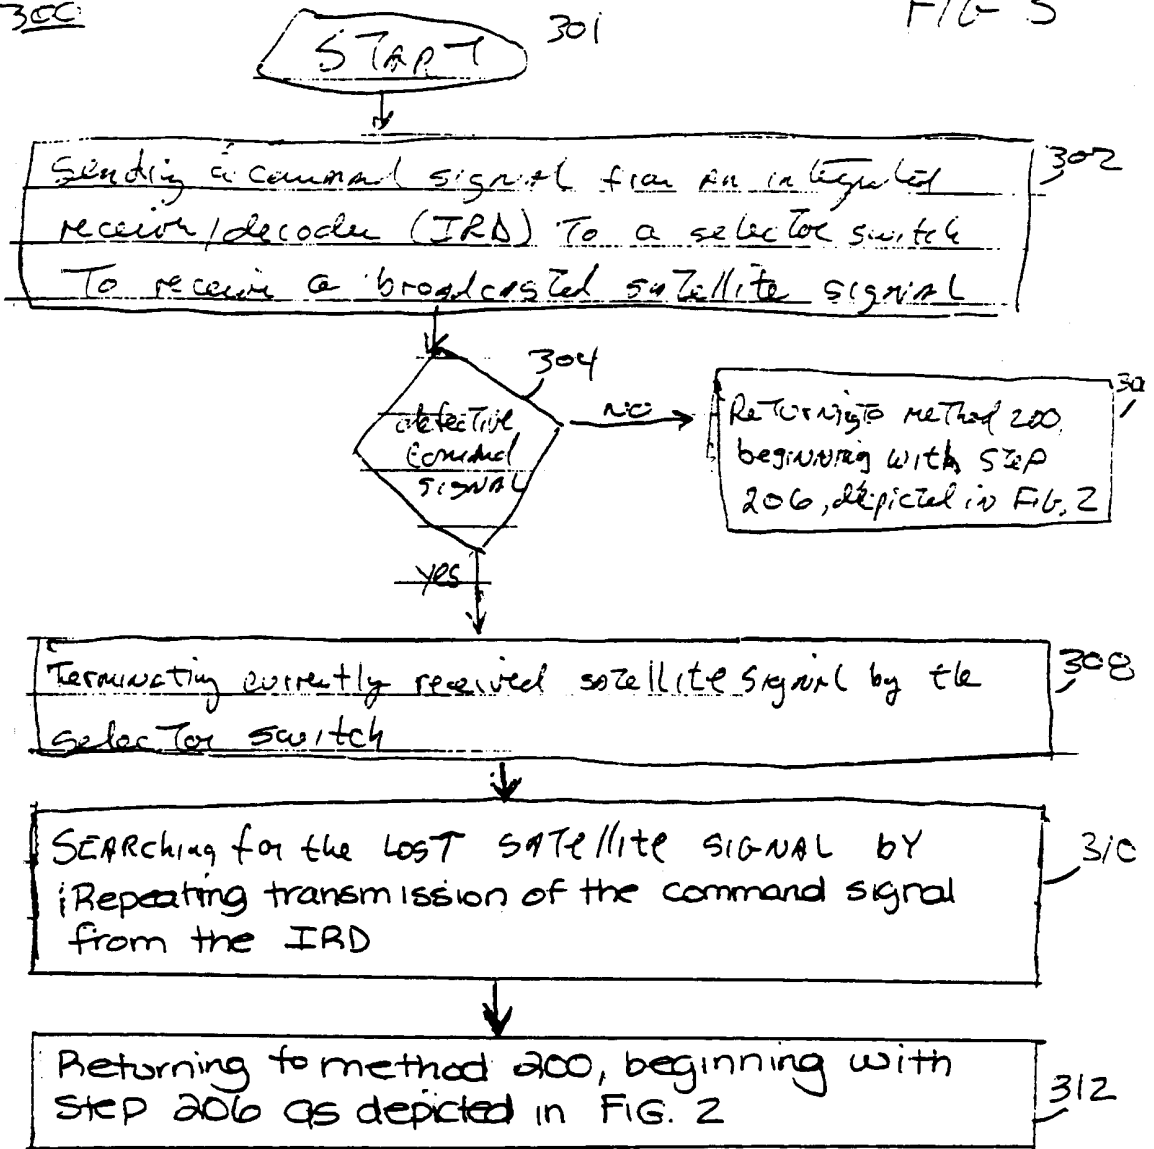 300
FIG 3
START
301
Sending a command signal from an integrated
receiver/decoder (IRD) To a selector switch
To receive a broadcasted satellite signal
302
304
defective
command
signal
NO
Returning to method 200,
beginning with step
206, depicted in FIG. 2
30
yes
Terminating currently received satellite signal by the
selector switch
308
SEARching for the LOST SATellite SIGNAL bY
Repeating transmission of the command signal
from the IRD
310
Returning to method 200, beginning with
Step 206 as depicted in FIG. 2
312